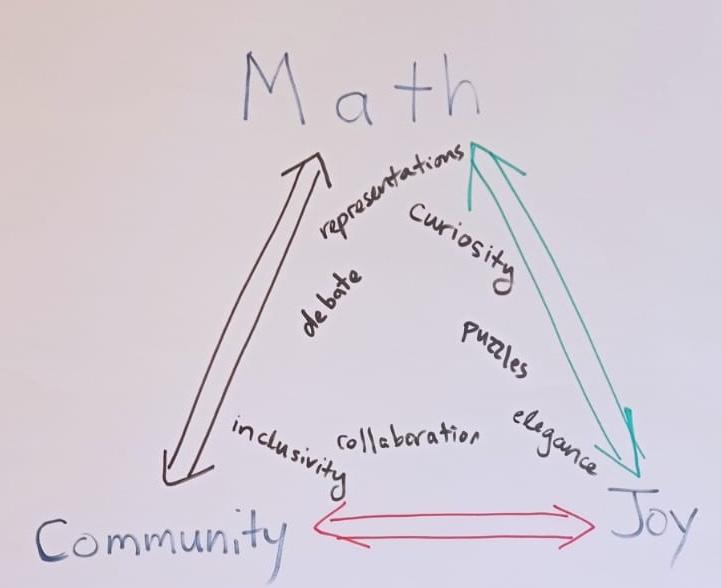 Math
representations
curiosity
debate
puzzles
inclusivity
collaboration
elegance
Community
Joy